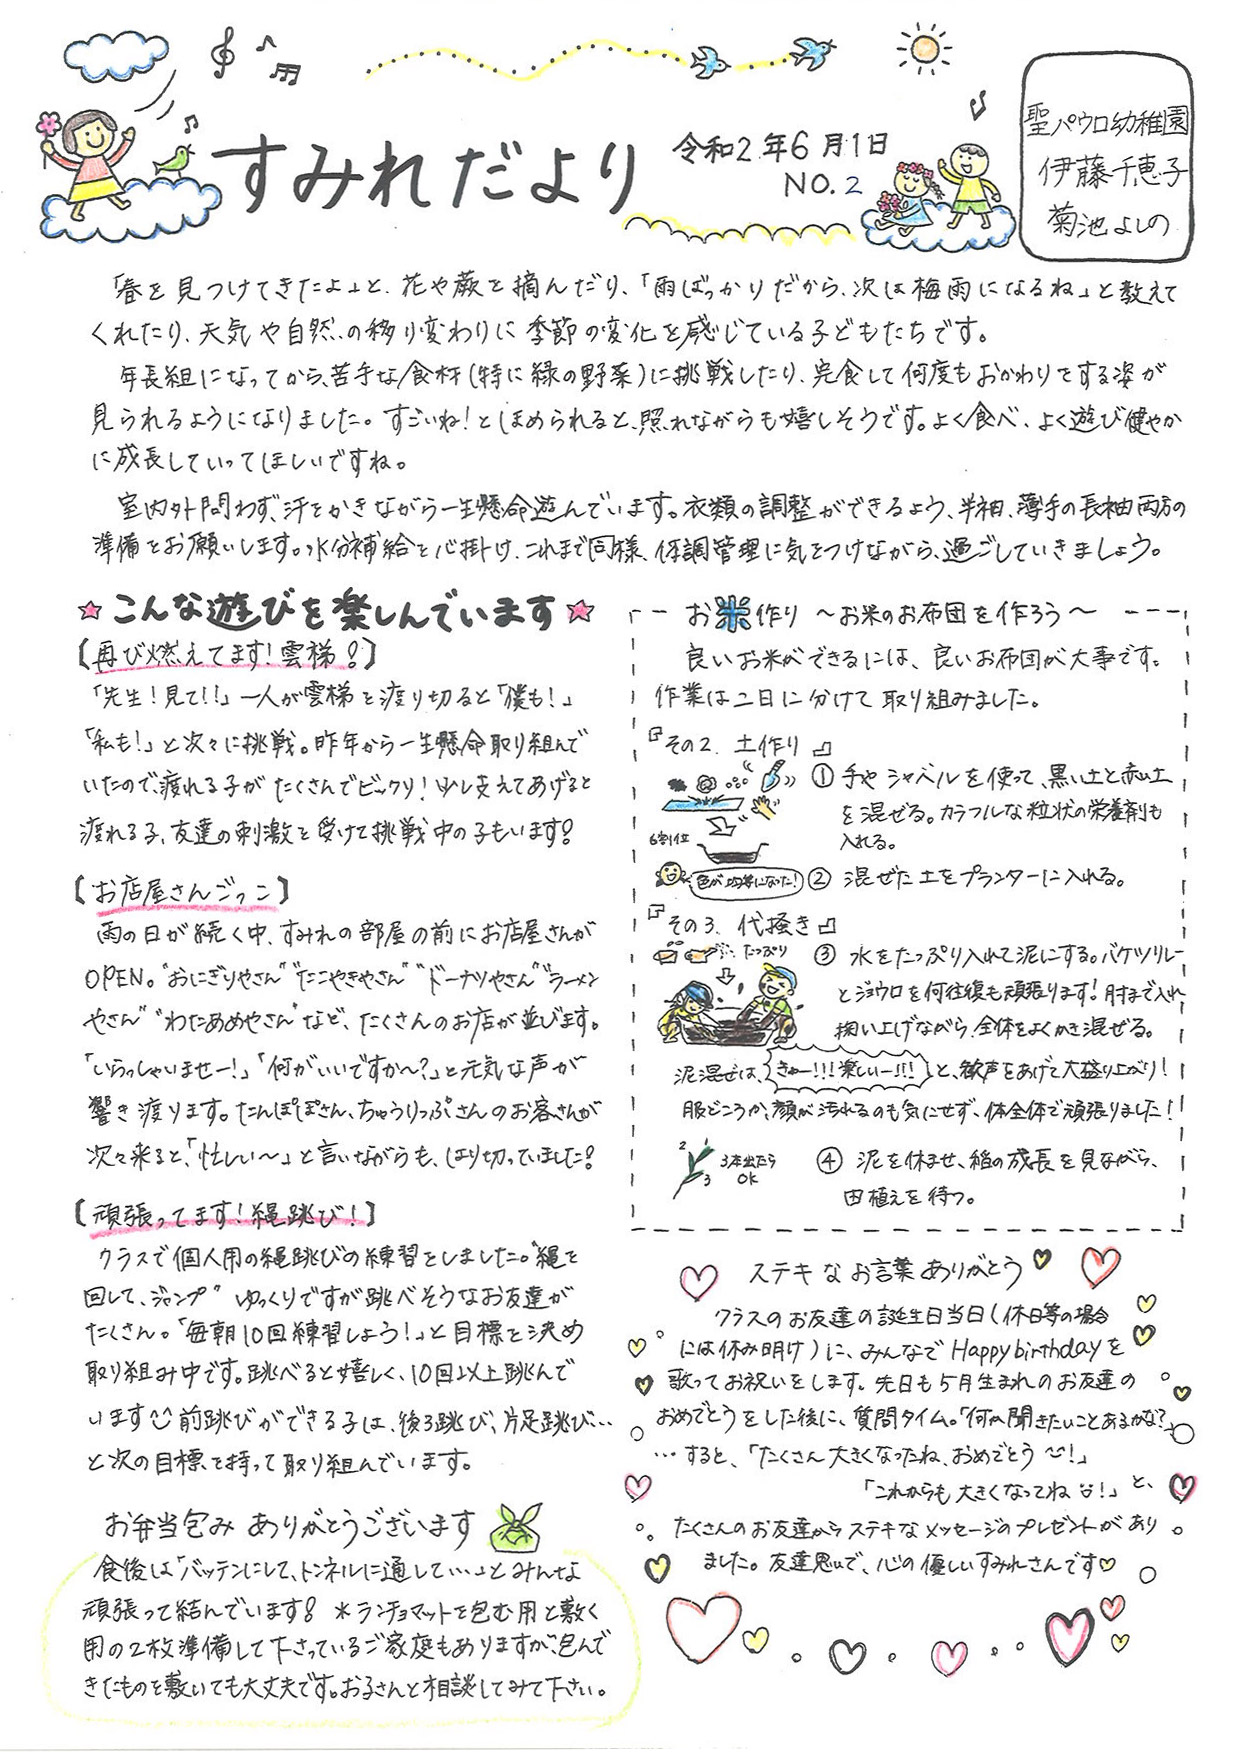 すみれだより
令和2年6月1日
NO.2
聖パウロ幼稚園
伊藤千恵子
菊池よしの
「春を見つけてきたよ」と、花や蕨を摘んだり、「雨ばっかりだから、次は梅雨になるね」と教えて
くれたり、天気や自然の移り変わりに季節の変化を感じている子どもたちです。
年長組になってから、苦手な食材(特に緑の野菜)に挑戦したり、完食して何度もおかわりをする姿が
見られるようになりました。すごいね!とほめられると、照れながらも嬉しそうです。よく食べ、よく遊び健やか
に成長していってほしいですね。
室内外問わず、汗をかきながら一生懸命遊んでいます。衣類の調整ができるよう、半袖、薄手の長袖両方の
準備をお願いします。水分補給を心掛け、これまで同様、体調管理に気をつけながら、過ごしていきましょう。
☆こんな遊びを楽しんでいます☆
【再び燃えてます!雲梯!】
「先生!見て!!」一人が雲梯を渡り切ると「僕も!」
「私も!」と次々に挑戦。昨年から一生懸命取り組んで
いたので、渡れる子がたくさんでビックリ!少し支えてあげると
渡れる子、友達の刺激を受けて挑戦中の子もいます!
【お店屋さんごっこ】
雨の日が続く中、すみれの部屋の前にお店屋さんが
OPEN。"おにぎりやさん""たこやきやさん""ドーナツやさん""ラーメン
やさん""わたあめやさん"など、たくさんのお店が並びます。
「いらっしゃいませー!」「何がいいですか〜?」と元気な声が
響き渡ります。たんぽぽさん、ちゅうりっぷさんのお客さんが
次々来ると、「忙しい〜」と言いながらも、はり切っていました!
【頑張ってます!縄跳び!】
クラスで個人用の縄跳びの練習をしました。"縄を
回して、ジャンプ" ゆっくりですが跳べそうなお友達が
たくさん。「毎朝10回練習しよう!」と目標を決め
取り組み中です。跳べると嬉しく、10回以上跳んで
います 前跳びができる子は、後ろ跳び、片足跳び…
と次の目標を持って取り組んでいます。
お弁当包み ありがとうございます
食後は「バッテンにして、トンネルに通して…」とみんな
頑張って結んでいます! *ランチョマットを包む用と敷く
用の2枚準備して下さっているご家庭もありますが、包んで
きたものを敷いても大丈夫です。お子さんと相談してみて下さい。
お米作り 〜お米のお布団を作ろう〜
良いお米ができるには、良いお布団が大事です。
作業は二日に分けて取り組みました。
『その2. 土作り』
① 手やシャベルを使って、黒い土と赤い土
を混ぜる。カラフルな粒状の栄養剤も
入れる。
6割位
色が均等になった!
② 混ぜた土をプランターに入れる。
『その3. 代掻き』
たっぷり
③ 水をたっぷり入れて泥にする。バケツリレー
とジョウロを何往復も頑張ります!肘まで入れ
掬い上げながら、全体をよくかき混ぜる。
泥混ぜは、きゃー!!!楽しいー!!!と、歓声をあげて大盛り上がり!
服どころか、顔が汚れるのも気にせず、体全体で頑張りました!
1
2
3
3本出たら
OK
④ 泥を休ませ、稲の成長を見ながら、
田植えを待つ。
ステキなお言葉ありがとう
クラスのお友達の誕生日当日(休日等の場合
には休み明け)に、みんなでHappy birthdayを
歌ってお祝いをします。先日も5月生まれのお友達の
おめでとうをした後に、質問タイム。「何か聞きたいことあるかな?」
…すると、「たくさん大きくなったね、おめでとう!」
「これからも大きくなってね!」と、
たくさんのお友達からステキなメッセージのプレゼントがあり
ました。友達思いで、心の優しいすみれさんです♡